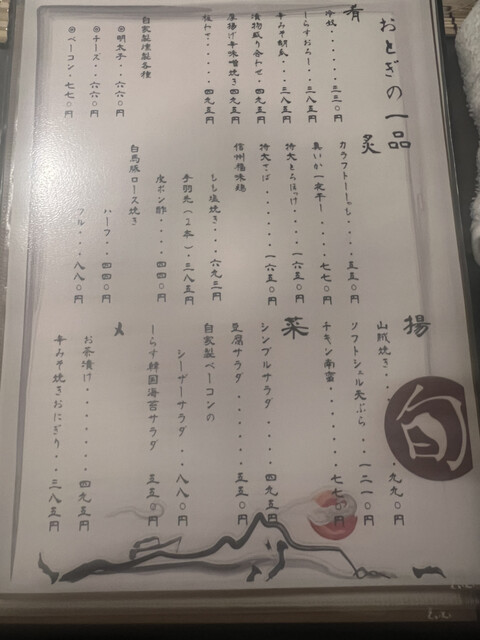 おとぎの一品
肴
冷奴・・・・・・三三〇円
しらすおろし・・三八五円
辛みそ胡瓜・・・三八五円
漬物盛り合わせ・四九五円
厚揚げ辛味噌焼き四九五円
桜わさ・・・・・四九五円
自家製燻製各種
◎明太子・・六六〇円
◎チーズ・・六六〇円
◎ベーコン・七七〇円
炙
カラフトししゃも・・・五五〇円
真いか一夜干し・・・七七〇円
特大とろほっけ・・・・一六五〇円
特大さば・・・・・・一六五〇円
信州福味鶏
もも塩焼き・・・六九三円
手羽先（２本）・三八五円
皮ポン酢・・・・四四〇円
白馬豚ロース焼き
ハーフ・・四四〇円
フル・・・八八〇円
揚
山賊焼き・・・・・・・九九〇円
ソフトシェル天ぷら・・一二一〇円
チキン南蛮・・・・・・七七〇円
菜
シンプルサラダ・・・・四九五円
豆腐サラダ・・・・・・五五〇円
自家製ベーコンの
シーザーサラダ・・八八〇円
しらす韓国海苔サラダ　五五〇円
〆
お茶漬け・・・・・・・四九五円
辛みそ焼きおにぎり・・三八五円
旬